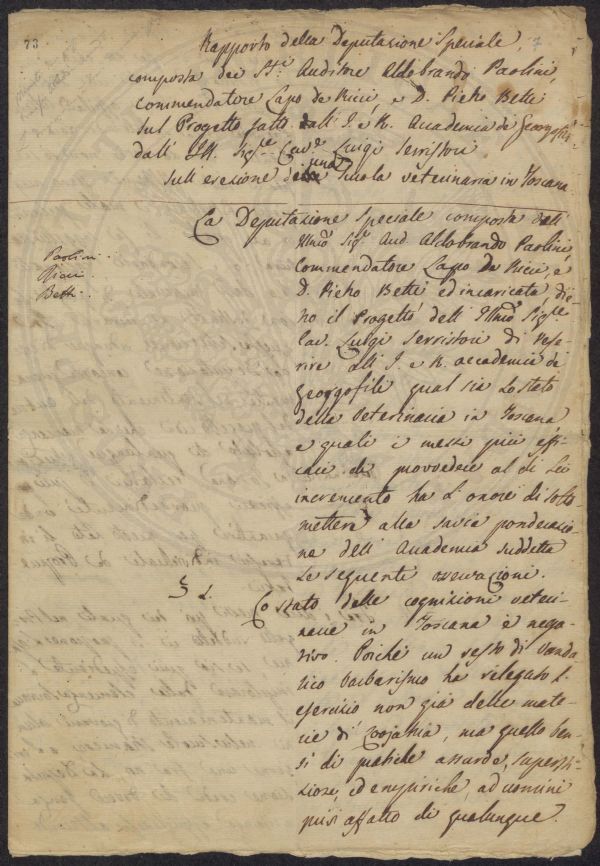 73
7
Rapporto della Deputazione Speciale,
composta dei Sti. Auditore Aldobrando Paolini,
Commendatore Lapo de Ricci, e D. Pietro Betti
sul Progetto fatto dall' I. e R. Accademia de' Georgofili
dall' Ill. Sige. Cave. Luigi Serristori
sull' erezione di una Scuola veterinaria in Toscana
Paolini.
Ricci.
Betti.
La Deputazione Speciale composta dell'
Illmo. Sigr. Aud. Aldobrando Paolini,
Commendatore Lapo De Ricci, e
D. Pietro Betti ed incaricata die-
tro il Progetto dell' Illmo. Sige.
Cav. Luigi Serristori di refe-
rire all' I. e R. accademia de'
georgofili qual sia lo stato
della Veterinaria in Toscana
e quali i mezzi più effi-
caci di provvedere al di Lei
incremento ha l'onore di sotto-
mettere alla savia ponderazio-
ne dell' Accademia suddetta
le seguenti osservazioni.
§ 1.
Lo stato delle cognizioni veteri-
narie in Toscana è nega-
tivo. Poichè un resto di vanda-
lico barbarismo ha relegato l'
esercizio non già delle mate-
rie di Zoojatria, ma quello ben-
sì di pratiche assurde, supersti-
ziose, ed empiriche, ad uomini
privi affatto di qualunque